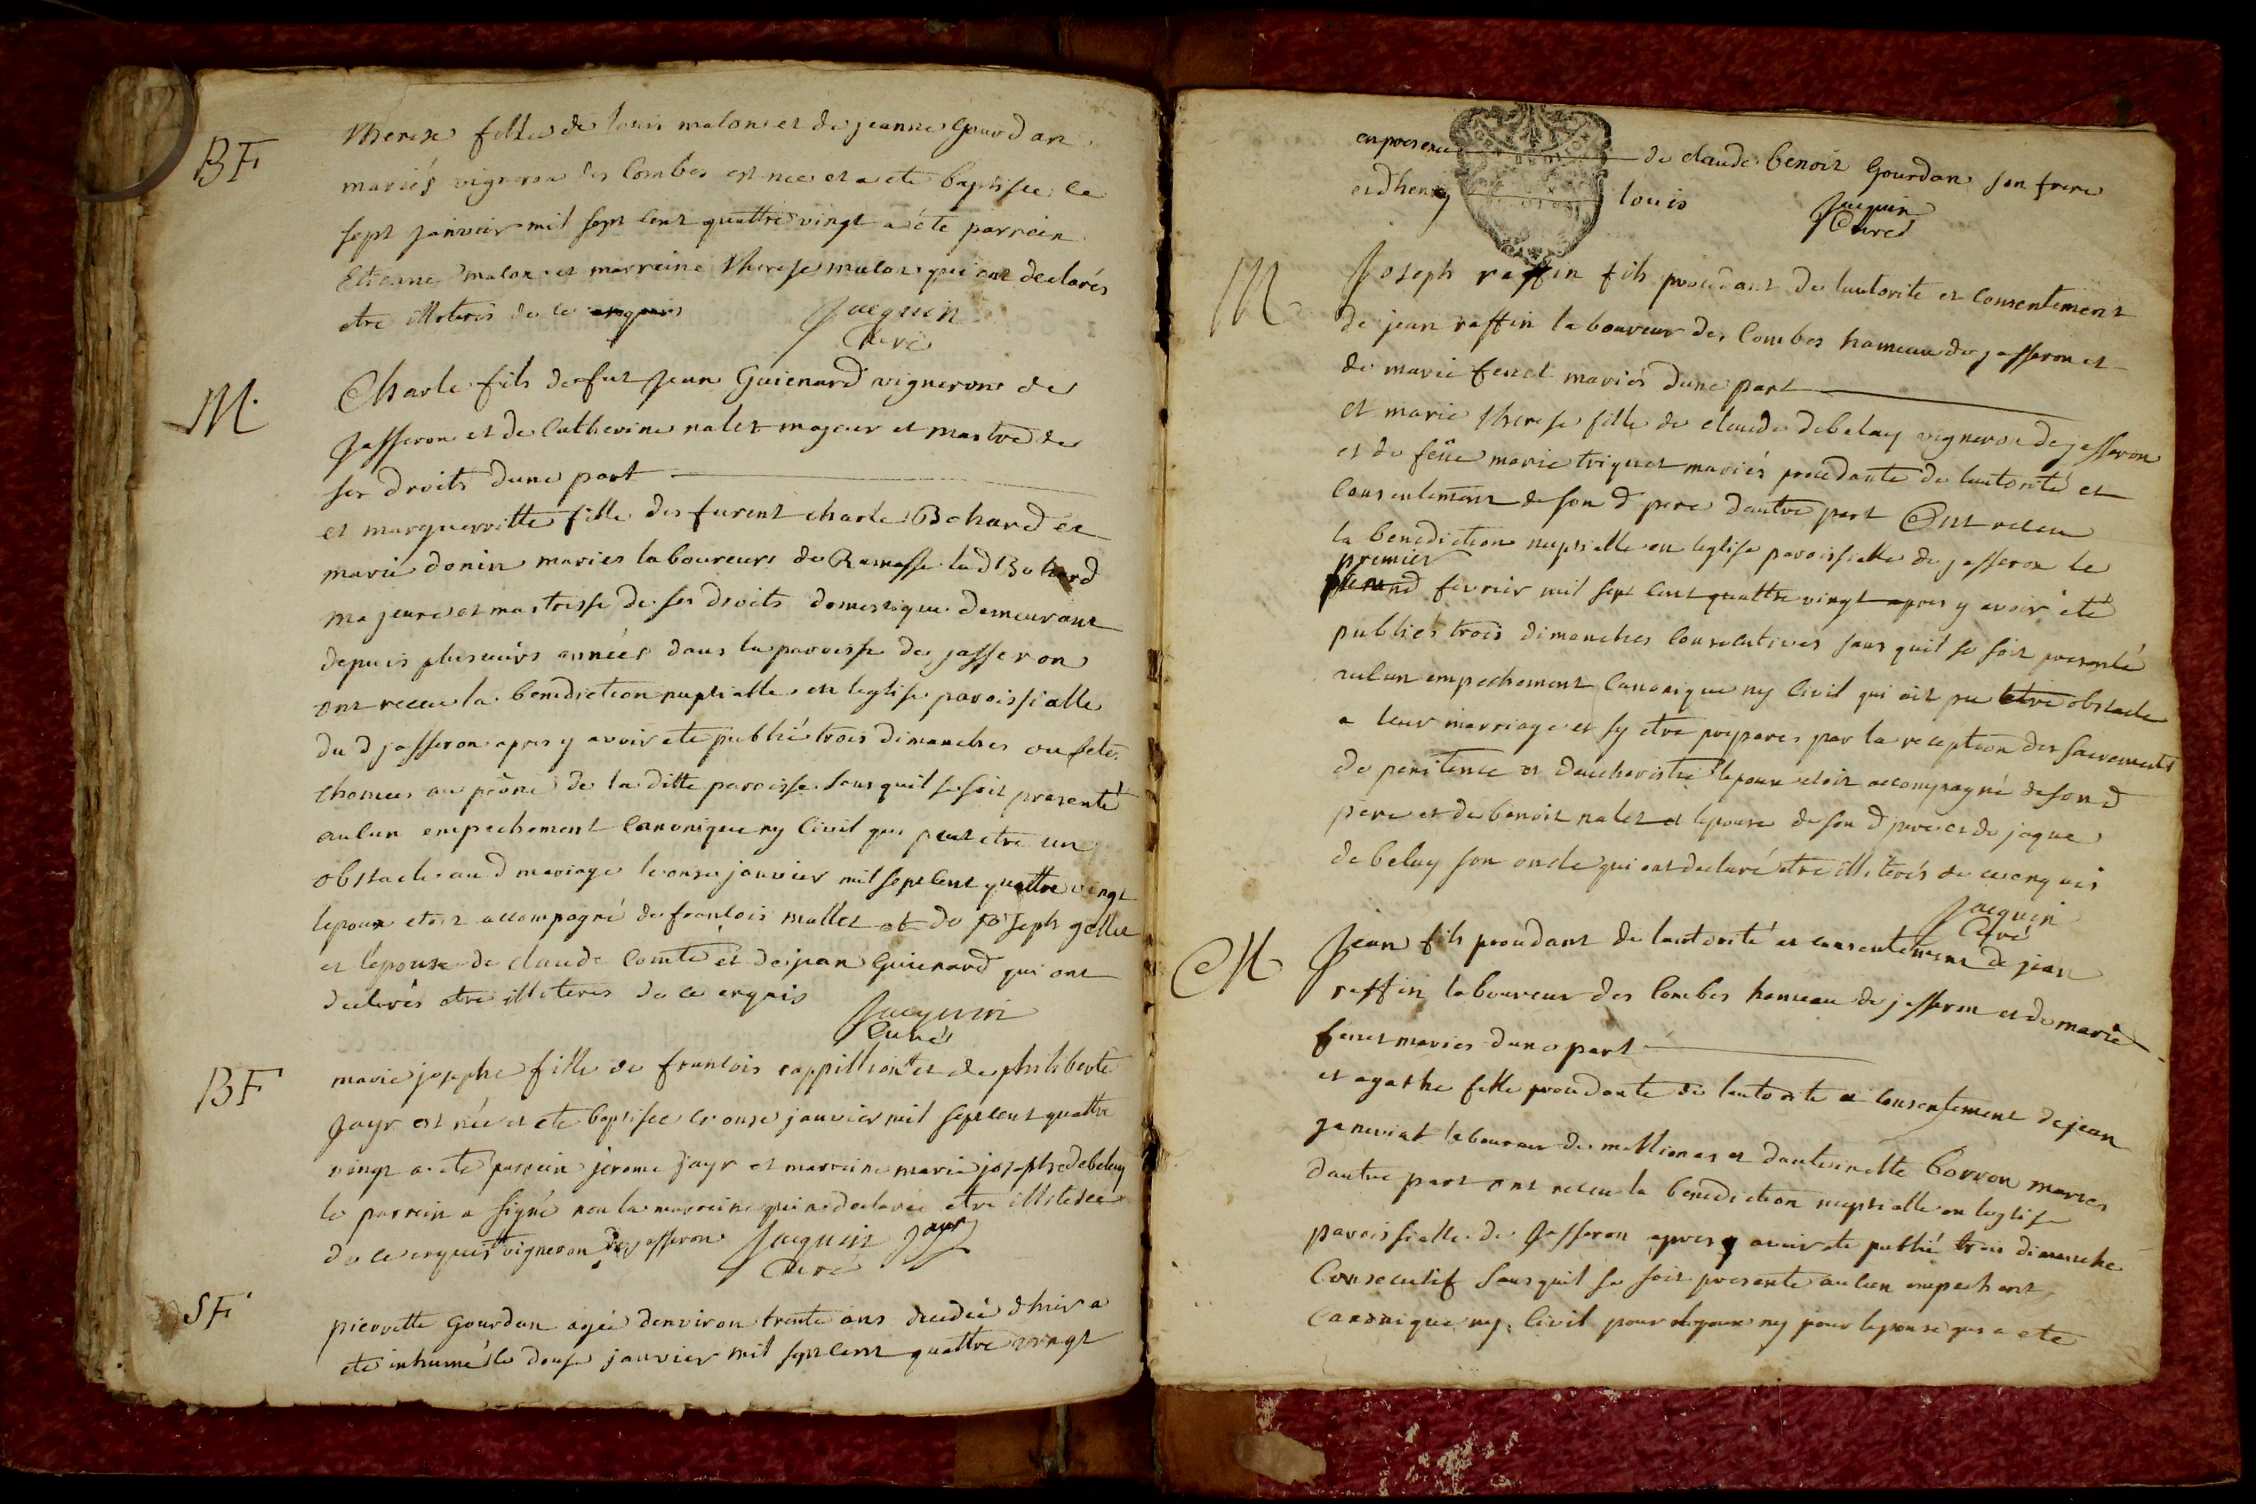 BF
therese fille de louis malon et de jeanne Gourdan
mariés vigneron des Combes est nee et a ete baptisee le
sept janvier mil sept cent quattre vingt a été parrein
Etienne malon et marreine therese malon qui ont declarés
etre illiterés de ce enquis
Jacquin
Curé
M.
Charle fils de fut Jean Guienard vigneron de
Jasseron et de Catherine nalet majeur et maitre de
ses droits dune part
et marguerritte fille des furent charle Bohard et
marie donin mariés laboureurs de Ramasse lad Bohard
majeure et maitresse de ses droits domestique demeurant
depuis plusieurs années dans la paroisse de jasseron
ont receu la benediction nuptialle en leglise paroissialle
du d jasseron apres y avoir ete publié trois dimanches ou fetes
chomees au prône de la ditte paroisse sans quil se soit presenté
aulcun empechement Canonique ny Civil qui peut etre un
obstacle au d mariage le onze janvier mil sept cent quattre vingt
lepoux etoit accompagné de francois mallet et de joseph gollet
et lépouse de claude Comte et de jean Guienard qui ont
declarés etre illiteres de ce enquis
Jacquin
Curé
BF
marie josephe fille de francois cappillion et de philiberte
Jayr est née et ete baptisee le onze janvier mil sept cent quattre
vingt a ete parrein jerome jayr et marreine marie josephe debelay
le parrein a signé non la marreine qui a declaree etre illiteree
de ce enquis vigneron de jasseron Jacquin Jayr
Curé
SF
pierrette Gourdan agée denviron trente ans decedée dhier a
eté inhumée le douse janvier mil sept cent quattre vingt
en presence de claude benoit Gourdan son frere
et dhenry louis
Jacquin
Curé
M
Joseph raffin fils procedant de lautorite et Consentement
de jean raffin laboureur des Combes hameau de jasseron et
de marie fenet mariés dune part
et marie therese fille de claude debelay vigneron de jasseron
et de feüe marie triquet mariés procedante de lautorité et
Consentement de son d pere dautre part Ont receu
la benediction nuptialle en leglise paroissialle de jasseron le
premier
fevrier mil sept cent quattre vingt apres y avoir été
publiés trois dimanches Consecutives sans quil se soit presenté
aulcun empechement Canonique ny Civil qui ait pu etre obstacle
a leur marriage et sy etre preparés par la reception des sacrements
de penitence et deucharistie lepoux etoit accompagné de son d
pere et de benoit nalet et lepouse de son d pere et de jaque
debelay son oncle qui ont declaré etre illiterés de ce enquis
Jacquin
Curé
M
Jean fils procedant de lautorité et consentement de jean
raffin laboureur des Combes hameau de jasseron et de marie
fenet mariés dune part
et agathe fille procedante de lautorite et Consentement de jean
janeriat laboureur de mellionas et dantoinette borron mariés
dautre part ont receu la benediction nuptialle en leglise
paroissialle de Jasseron apres y avoir ete publié trois dimanche
Consecutif sans quil se soit presente aulcun empechent
Canonique ny Civil pour lepoux ny pour lepouse qui a ete